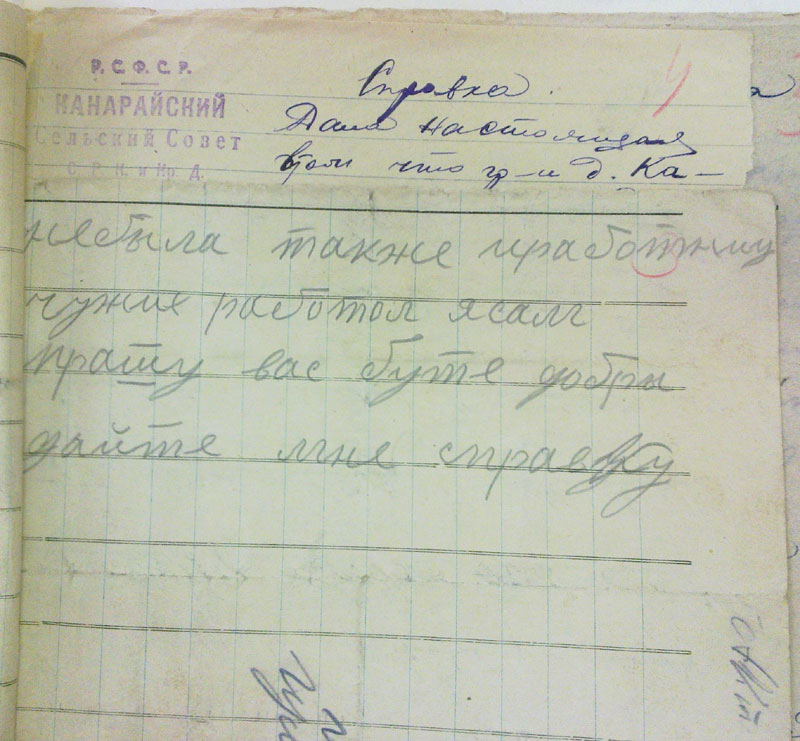 Р. С. Ф. С. Р.
КАНАРАЙСКИЙ
Сельский Совет
С. Р. К. и Кр. Д.
Справка.
4
Дана настоящая
втом что гр-н д. Ка-
небыла также иработниц
чужих работол ясалг
прашу вас буте добры
дайте мне справку